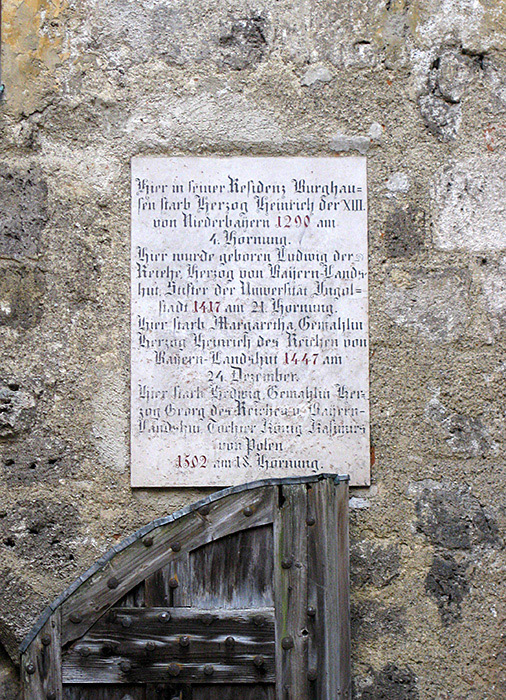 Hier in seiner Residenz Burghau-
sen starb Herzog Heinrich der XIII.
von Niederbayern 1290 am
4. Hornung.
Hier wurde geboren Ludwig der
Reiche, Herzog von Bayern-Lands-
hut, Stifter der Universität Ingol-
stadt 1417 am 21. Hornung.
Hier starb Margaretha, Gemahlin
Herzog Heinrich des Reichen von
Bayern-Landshut 1447 am
24. Dezember.
Hier starb Hedwig, Gemahlin Her-
zog Georg des Reichen v. Bayern-
Landshut, Tochter König Kasimirs
von Polen
1502 am 18. Hornung.